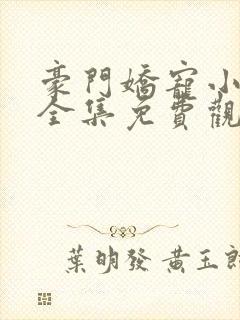 豪門嬌寵小
全集免費觀
葉明發 黃玉郎